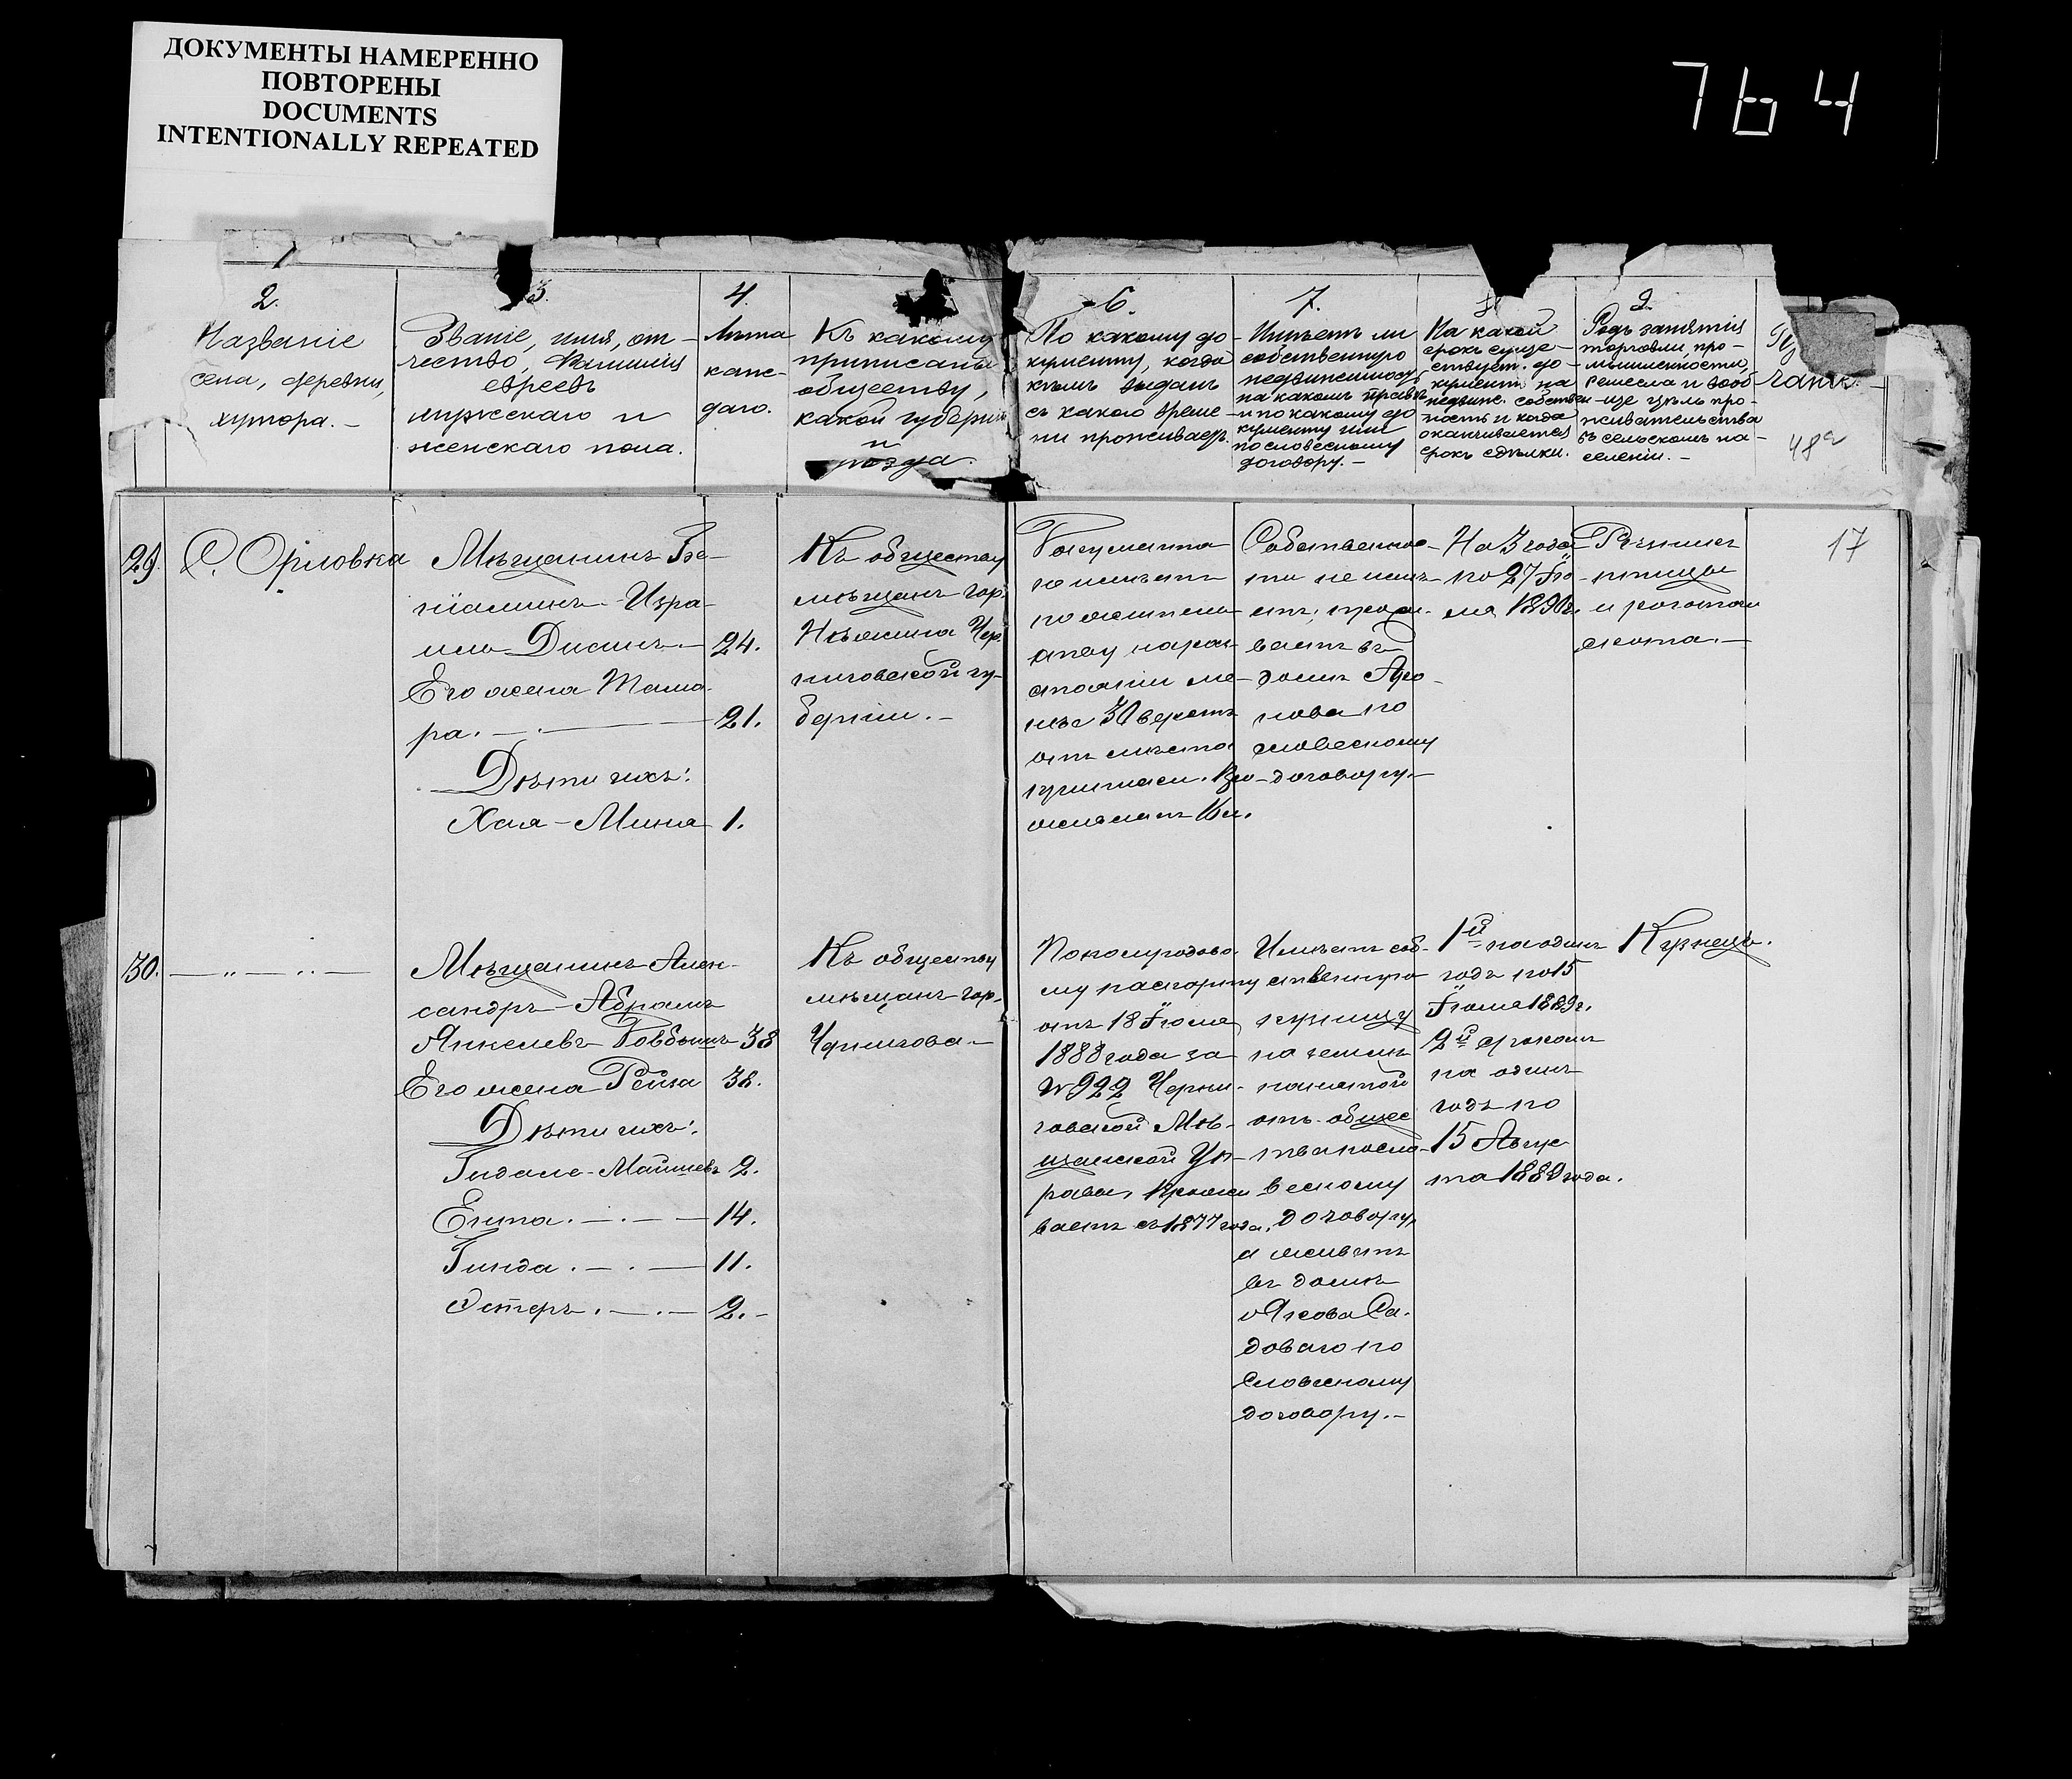 ДОКУМЕНТЫ НАМЕРЕННО
ПОВТОРЕНЫ
DOCUMENTS
INTENTIONALLY REPEATED
764
2.
Названіе
села, деревни,
хутора. –
3.
Званіе, имя, от-
чество, Фамилія
евреевъ
мужескаго и
женскаго пола.
4.
Лѣта
каж-
даго.
Къ какому
приписаны
обществу,
какой губерніи
и
уѣзда.
6.
По какому до-
кументу, когда
кѣмъ выданъ
съ какого време-
ни проживаетъ.
7.
Имѣетъ ли
собственную
недвижимость
на какомъ правѣ
и по какому до-
кументу или
по словесному
договору. –
На какой
срокъ суще-
ствует. до-
кументъ на
недвиж. собствен-
ность и когда
оканчивается
срокъ сдѣлки.
9.
Родъ занятія
торговли, про-
мышленности,
ремесла и вооб-
ще цѣль про-
живательства
въ сельскомъ на-
селеніи. –
чаніе. –
48а
17
29.
С. Орловка
Мѣщанинъ Бе-
ніаминъ-Изра-
иль Дисинъ – 24.
Его жена Тама-
ра. – 21.
Дѣти ихъ:
Хая-Мина 1.
Къ обществу
мѣщанъ гор.
Нѣжина Чер-
ниговской гу-
берніи. –
Документа
не имѣетъ
по жительству
на раз-
стояніи ме-
нѣе 30 верстъ
отъ мѣста
приписки.
Собственнос-
ти не имѣ-
етъ; прожи-
ваетъ въ
домѣ
по
словесному
договору. –
На 3 года
по 27 Ію-
ля 1890 г.
Рѣзникъ
птицы
и рогатаго
скота. –
30.
– „ – „ –
Мѣщанинъ Алек-
сандръ-Абрамъ
Янкелевъ 38
Его жена Рейза 38.
Дѣти ихъ:
Гидале-Майшевъ 2.
Энта. – 14.
Гинда. – 11.
Эстеръ. – 2. –
Къ обществу
мѣщанъ гор.
Чернигова –
По полугодово-
му паспорту
отъ 18 Іюля
1888 года за
№ 922 Черни-
говской Мѣ-
щанской Уп-
равы. Прожи-
ваетъ съ 1877 года.
Имѣетъ соб-
ственную
кузницу
на землѣ
нанятой
отъ общес-
тва по сло-
весному
договору,
а живетъ
въ домѣ
Якова Са-
доваго по
словесному
договору. –
1й на одинъ
годъ по 15
Іюля 1889 г.
2й срокомъ
на одинъ
годъ по
15 Авгус-
та 1889 года.
Кузнецъ.